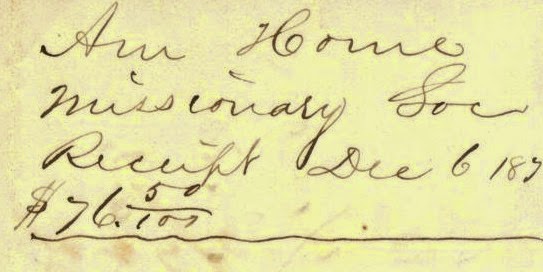 Am Home
Missionary Soc
Receipt Dec 6 187
$76.50/100